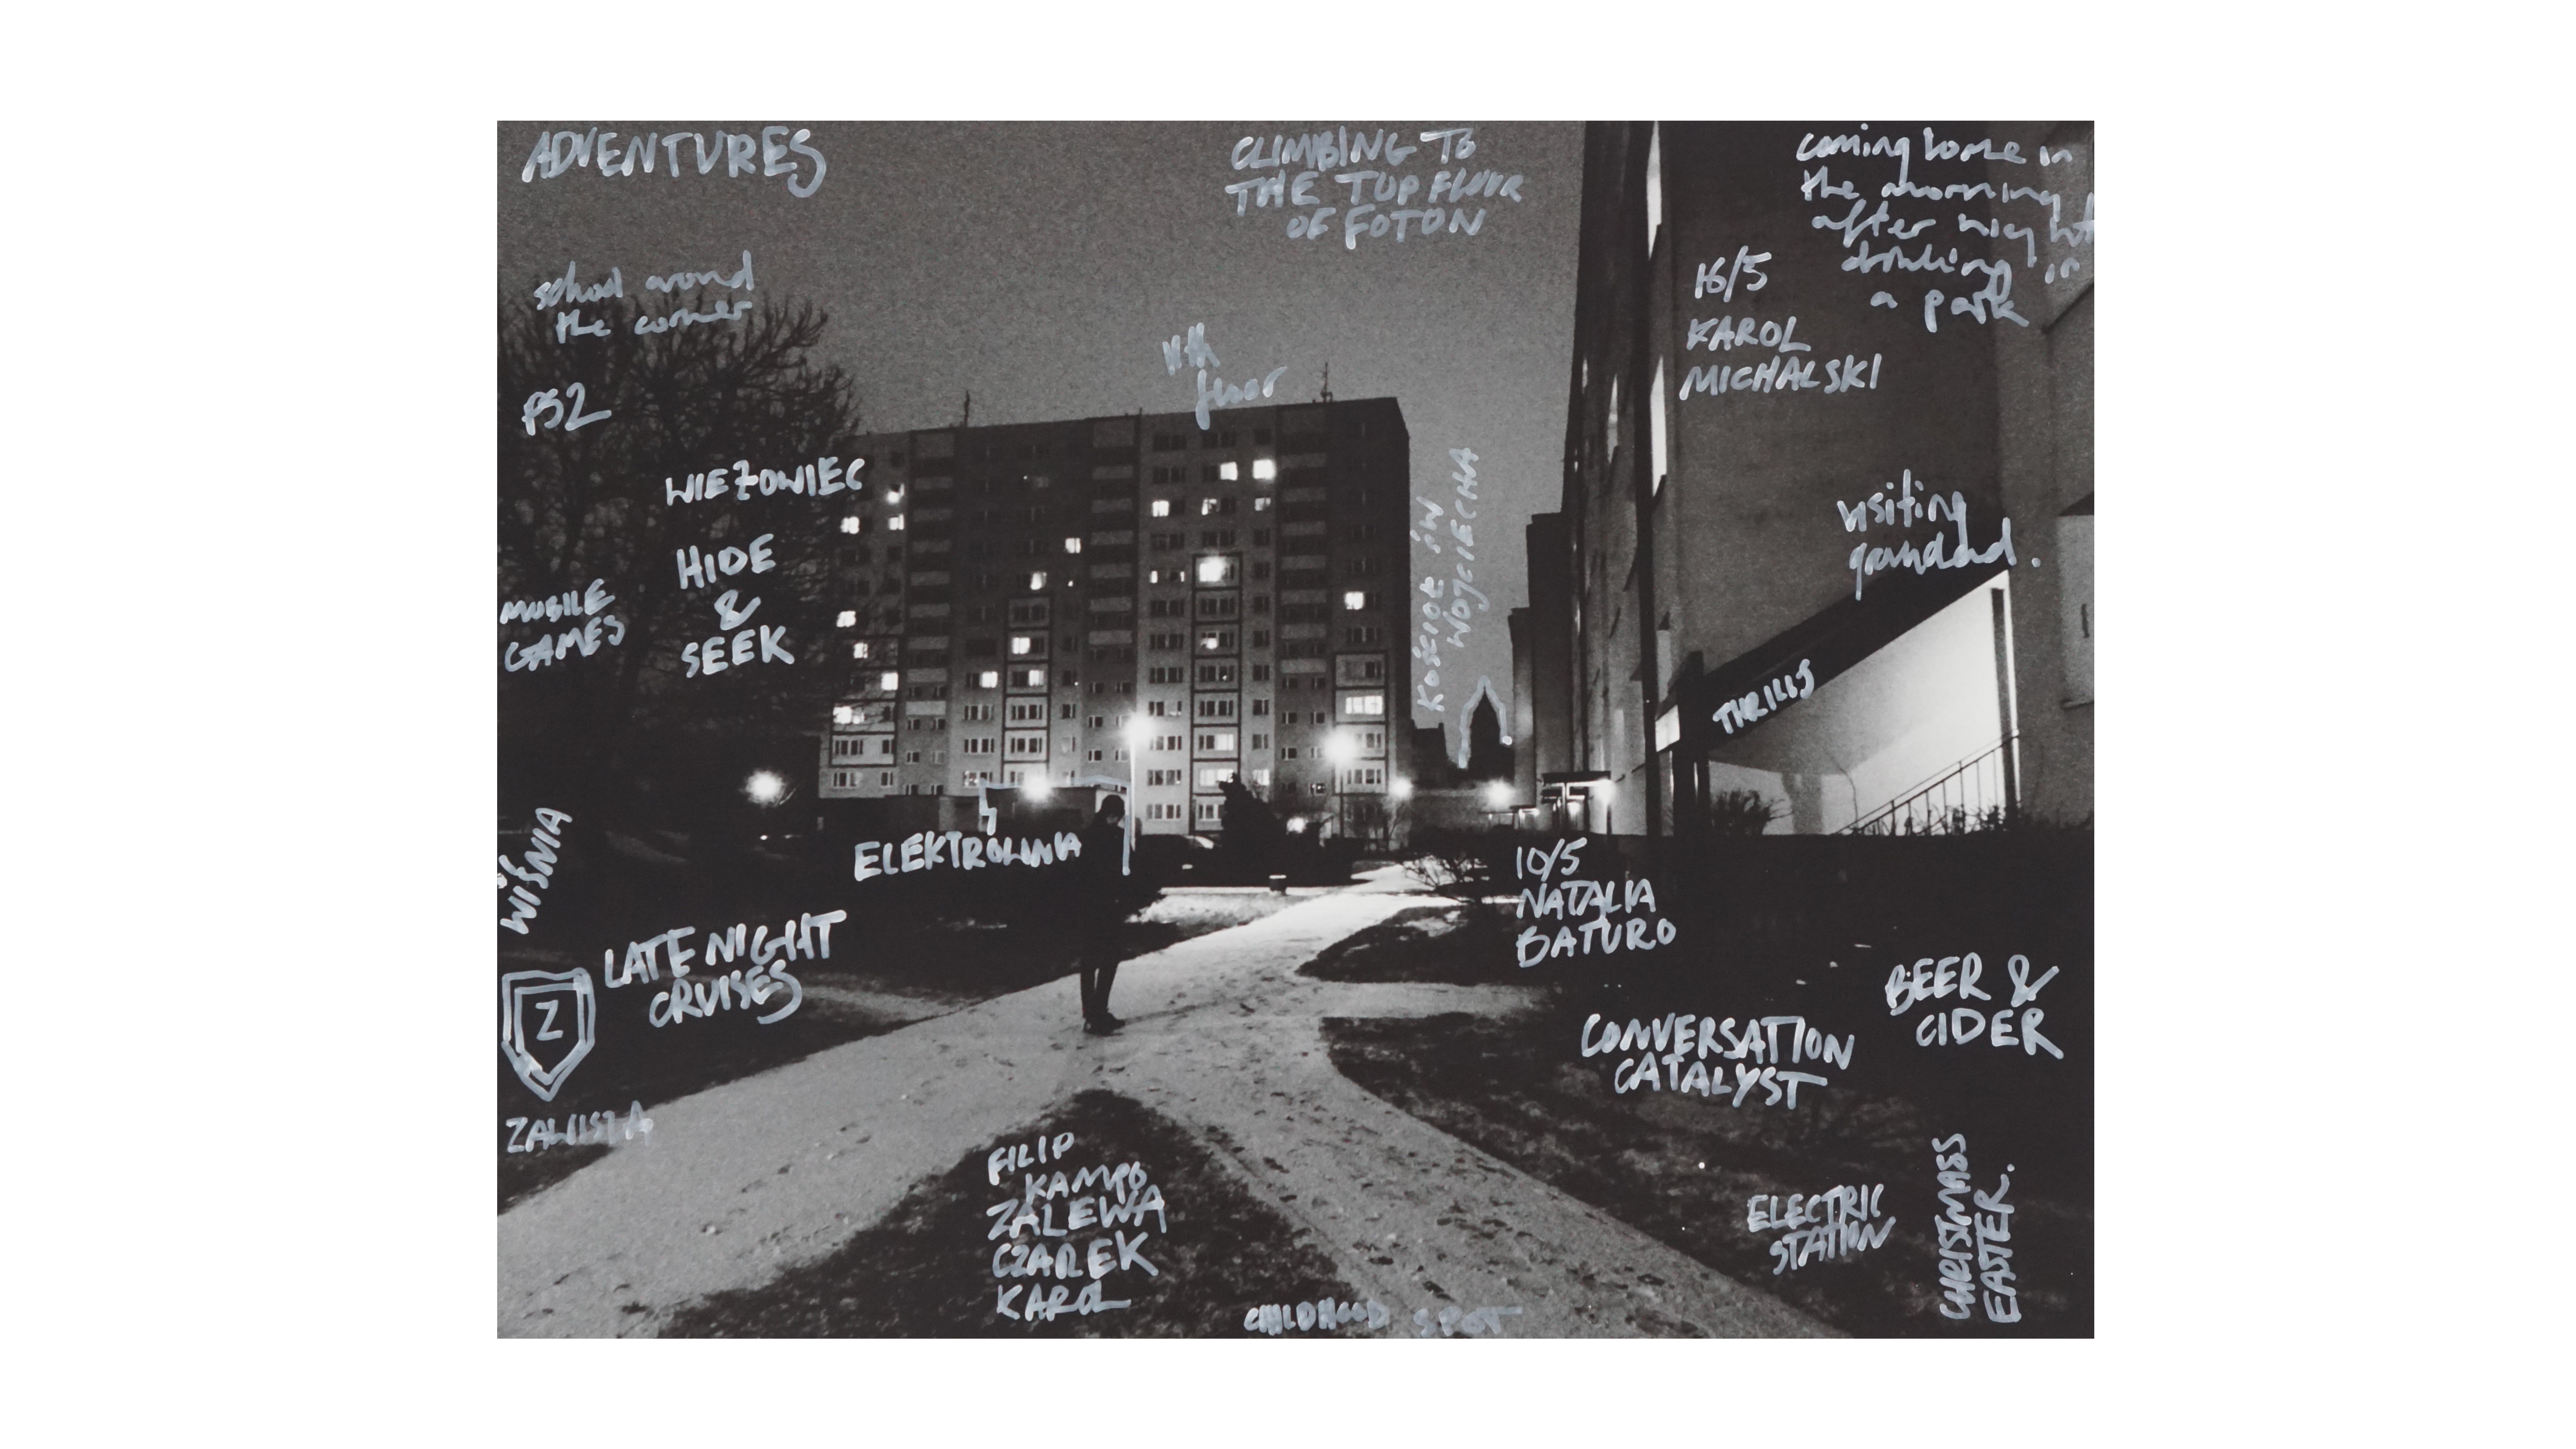 ADVENTURES
CLIMBING TO
THE TOP FLOOR
OF FOTON
coming home in
the morning
after night
drinking in
a park
school around
the corner
16/5
KAROL
MICHALSKI
11th
floor
PS2
WIEŻOWIEC
HIDE
&
SEEK
KOŚCIÓŁ ŚW
WOJCIECHA
visiting
grandad.
MOBILE
GAMES
THRILLS
WIŚNIA
ELEKTROWNIA
10/5
NATALIA
BATURO
LATE NIGHT
CRUISES
BEER &
CIDER
Z
CONVERSATION
CATALYST
ZAWISZA
FILIP
KAMPO
ZALEWA
CZAREK
KAROL
ELECTRIC
STATION
CHRISTMASS
EASTER.
CHILDHOOD SPOT